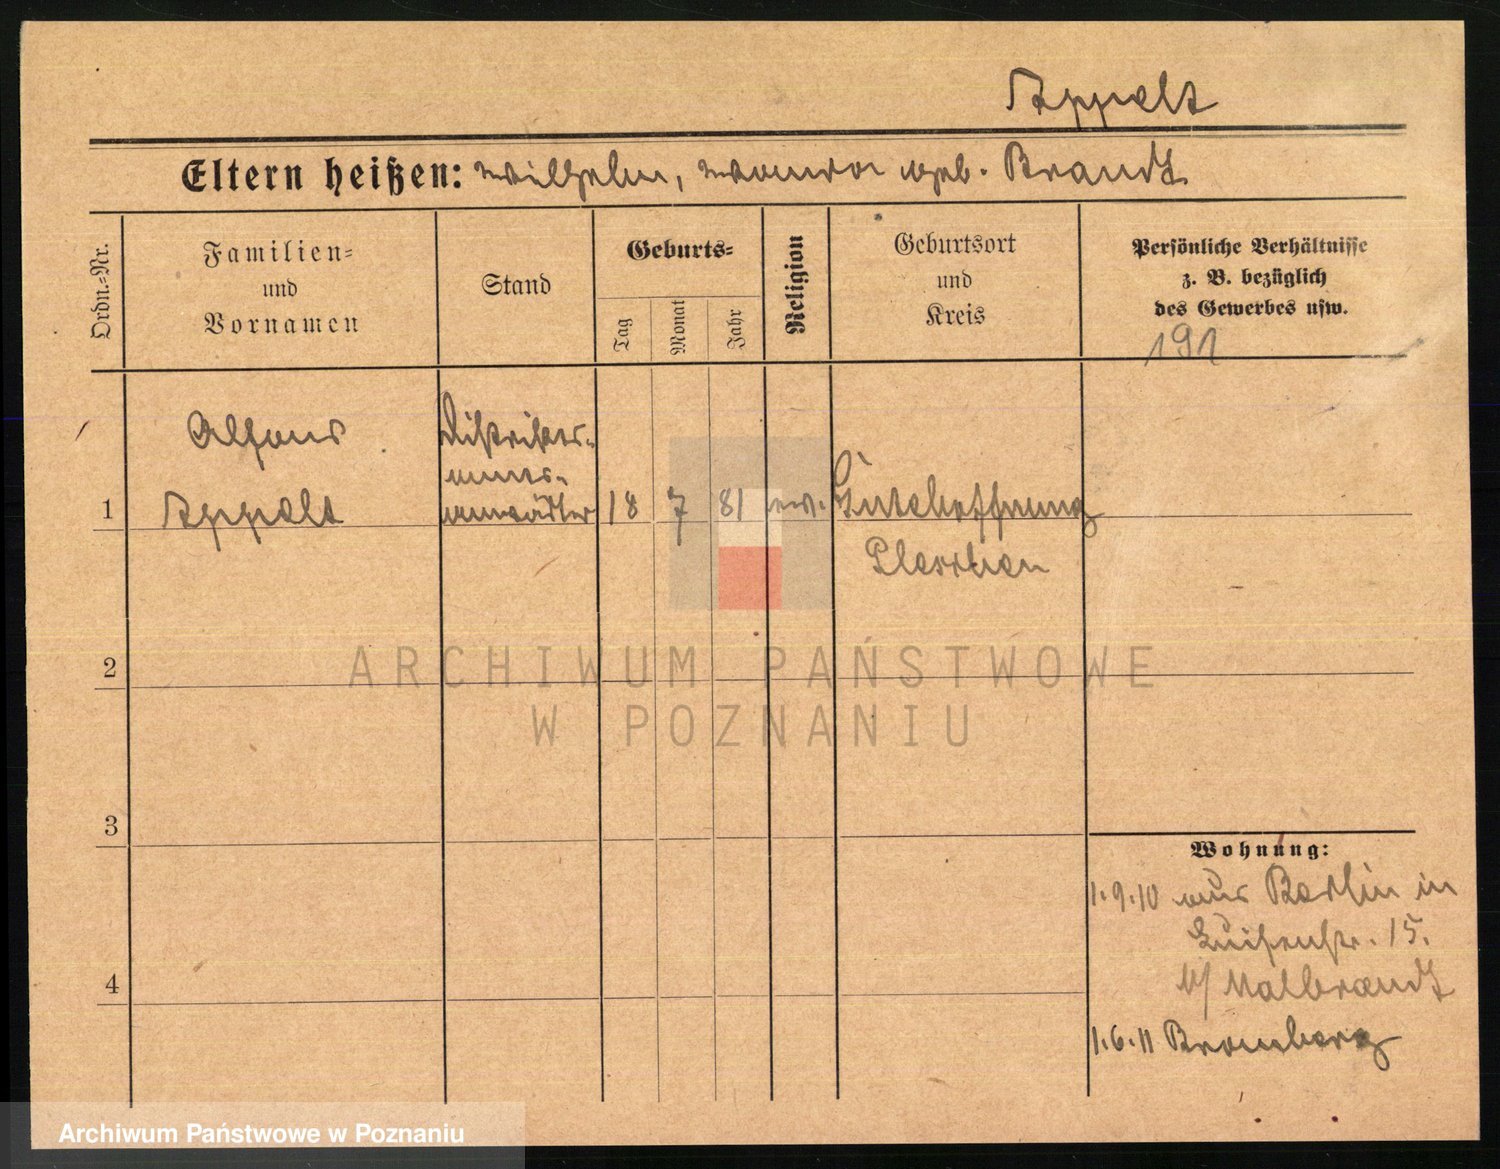 Appelt
Eltern heißen: Wilhelm, geb. Brandt
Ordn.-Nr.
Familien-
und
Vornamen
Stand
Geburts-
Tag
Monat
Jahr
Religion
Geburtsort
und
Kreis
Persönliche Verhältnisse
z. B. bezüglich
des Gewerbes usw.
191
1
Alfons
Appelt
Distrikts-
amts-
anwärter
18
7
81
ev.
Gutehoffnung
Pleschen
2
3
4
Wohnung:
1.9.10 aus Berlin in
Luisenstr. 15.
b/ Malbrandt
1.6.11 Bromberg
ARCHIWUM PAŃSTWOWE
W POZNANIU
Archiwum Państwowe w Poznaniu